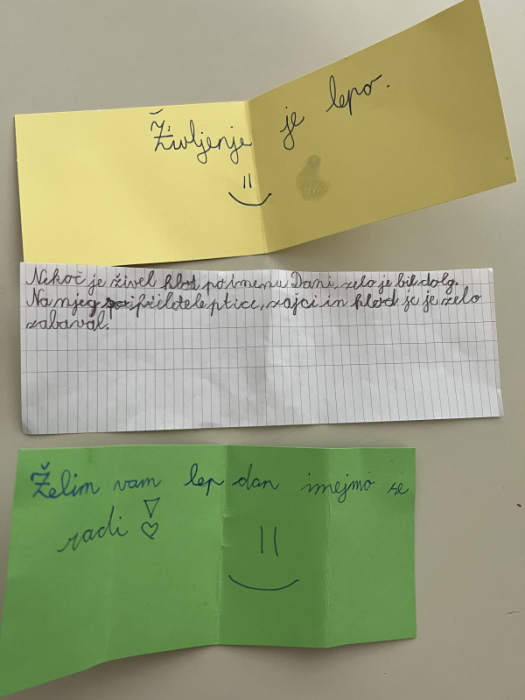 Življenje je lepo.
Nekoč je živel hlod po imenu Dani, zelo je bil dolg.
Na njeg pripiletele ptice, zajci in hlod se je zelo
zabaval.
Želim vam lep dan imejmo se
radi